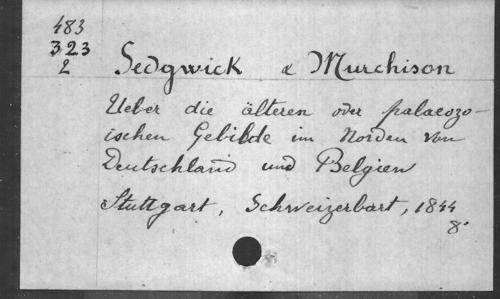 483
323
2
Sedgwick & Murchison
Ueber die älteren oder palaeozo-
ischen Gebilde im Norden von
Deutschland und Belgien
Stuttgart, Schweizerbart, 1844
8°